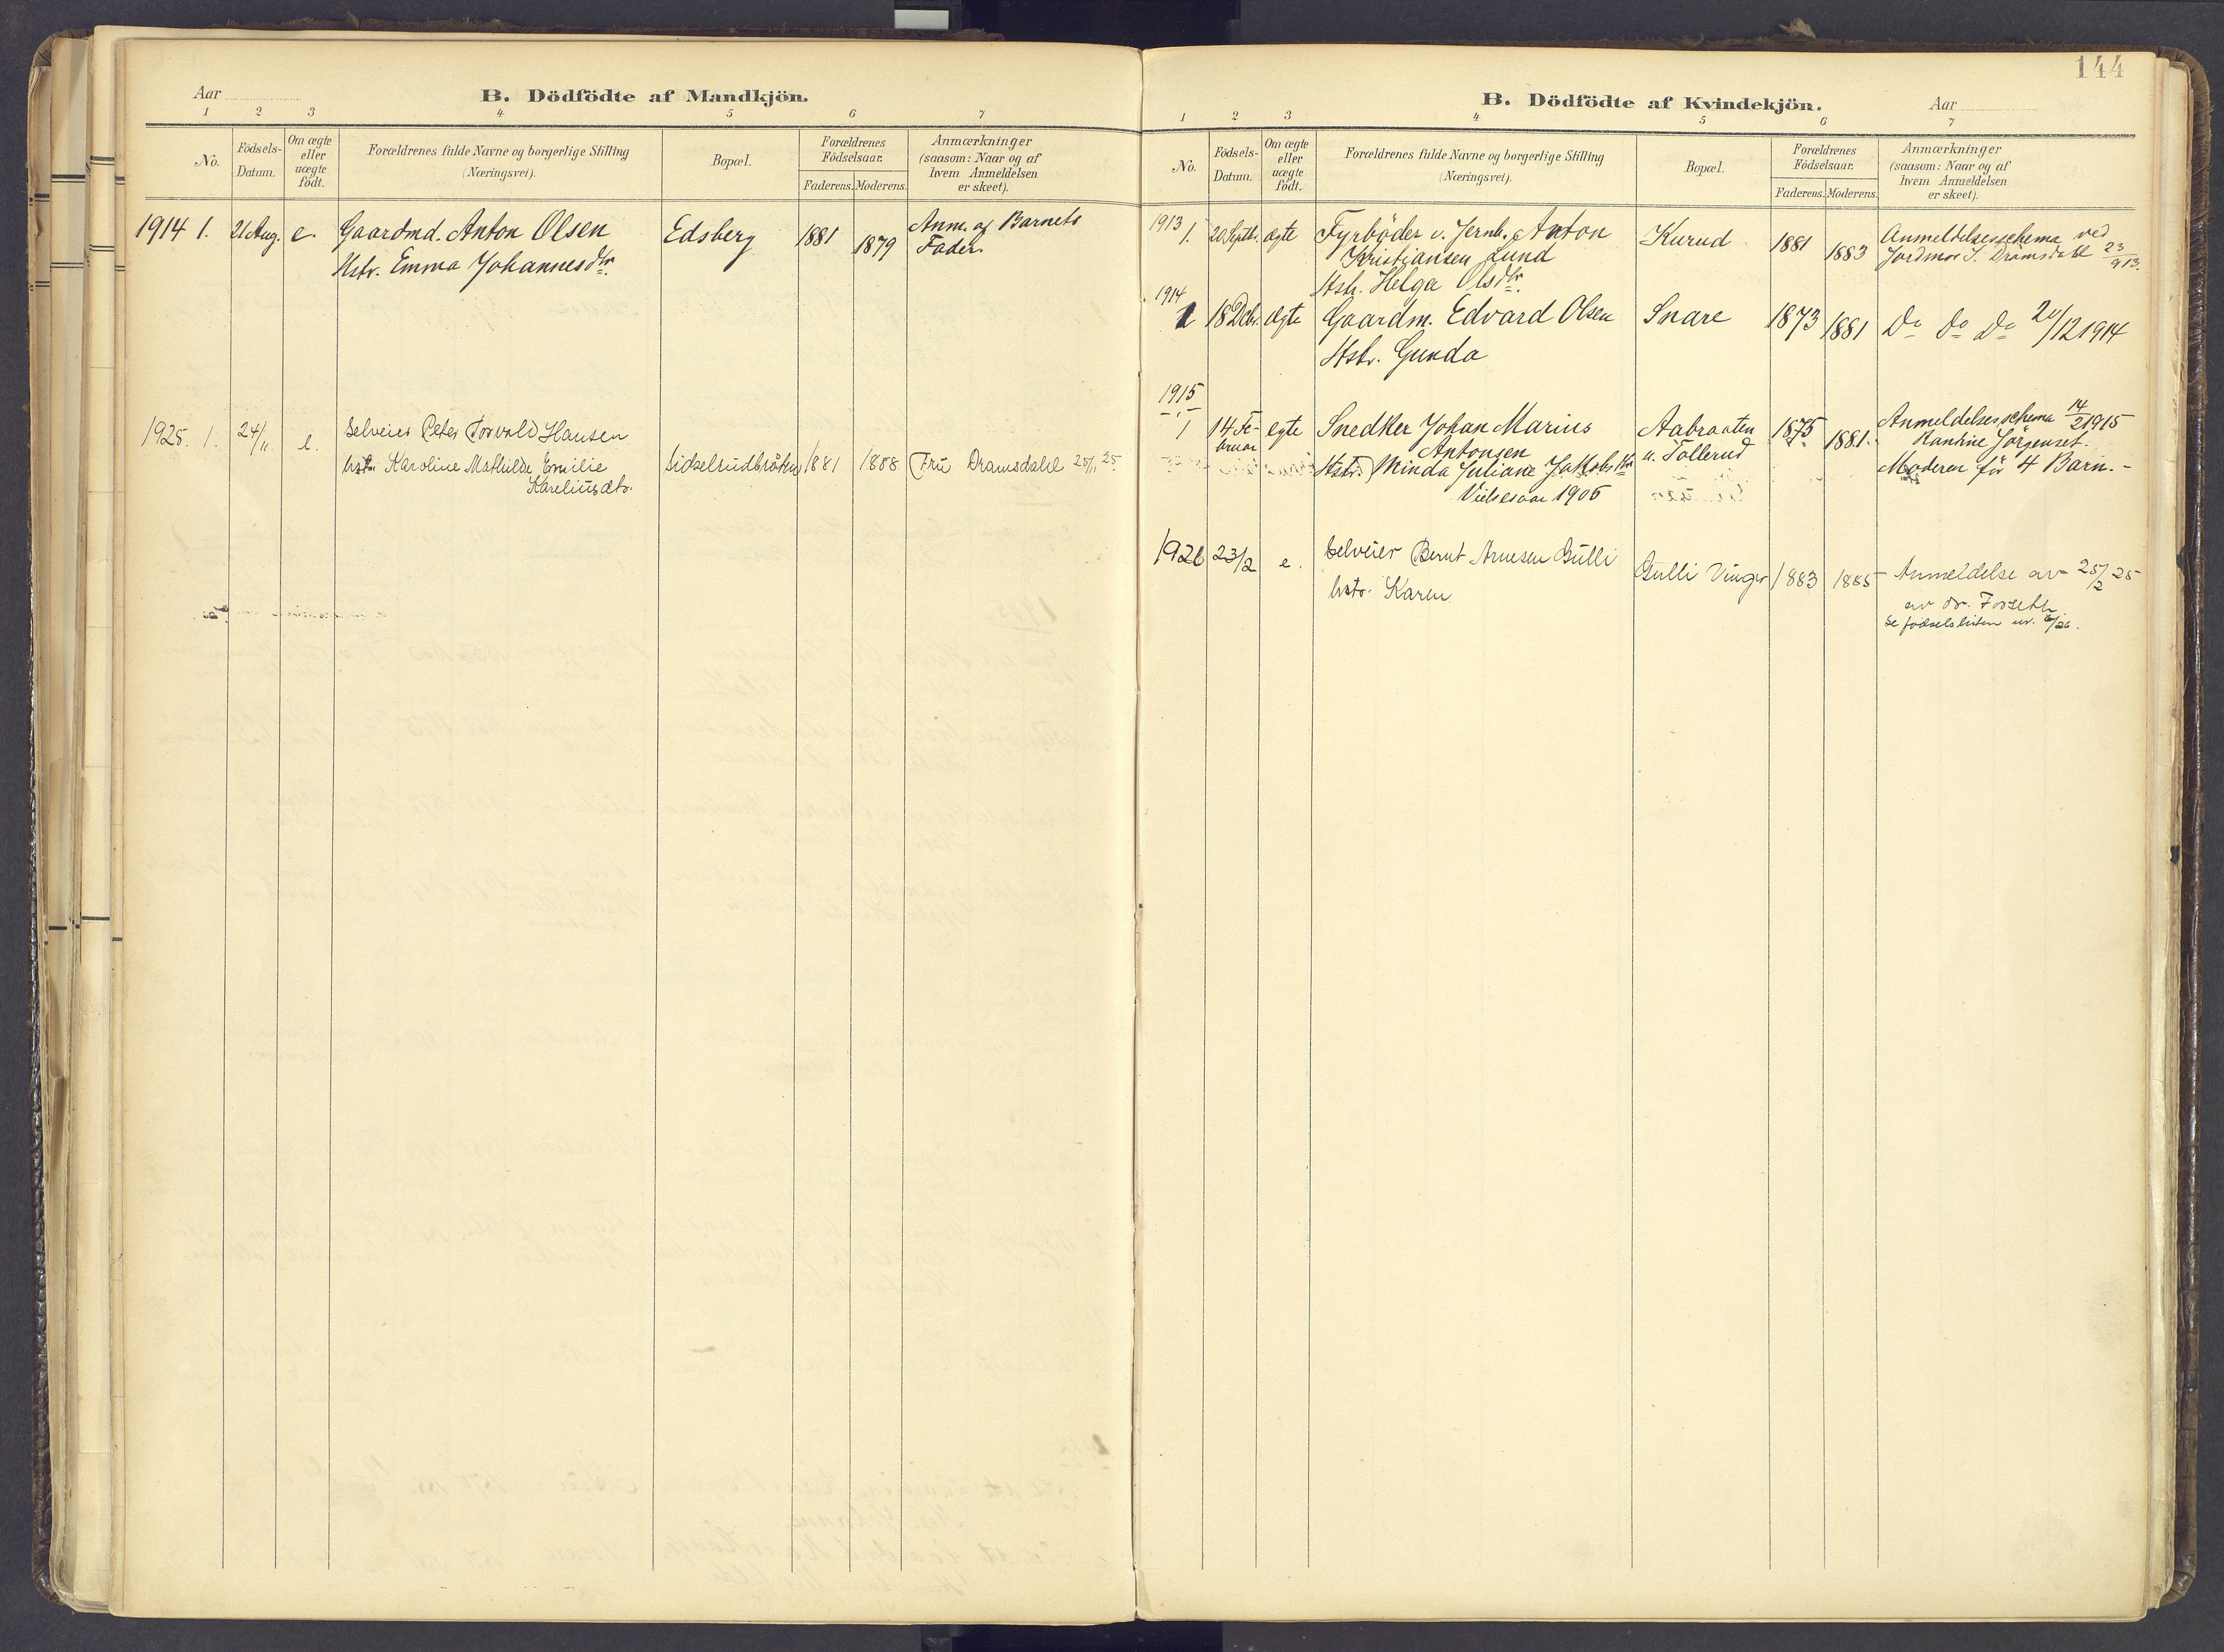 Aar
B. Dödfödte af Mandkjön.
1 2 3 4 5 6 7
No. Födsels-Datum. Om ægte eller uægte födt. Forældrenes fulde Navne og borgerlige Stilling (Næringsvei). Bopæl. Forældrenes Födselsaar. Faderens. Moderens. Anmærkninger (saasom: Naar og af hvem Anmeldelsen er skeet).
1914 1. 21 Aug. e. Gaardmd. Anton Olsen Edsberg 1881 1879 Anm. af Barnets
Hstr. Emma Johannesdtr. Fader.
1925. 1. 24/11 e. Selveier Peter Torvald Hansen
hstr. Karoline Mathilde Emilie 1881 1888 Fru Dramsdahl 25/11 25
Kareliusdtr.
144
B. Dödfödte af Kvindekjön.
Aar
1 2 3 4 5 6 7
No. Födsels-Datum. Om ægte eller uægte födt. Forældrenes fulde Navne og borgerlige Stilling (Næringsvei). Bopæl. Forældrenes Födselsaar. Faderens. Moderens. Anmærkninger (saasom: Naar og af hvem Anmeldelsen er skeet).
1913 1. 20 Septb. ægte Fyrbøder v. Jernb. Anton Kurud 1881 1883 Anmeldelsesschema ved
Kristiansen Lund Jordmor S. Dramsdahl 23/9 13.
Hstr. Helga Olsdtr.
1914
1 18 Dcbr. ægte Gaardm. Edvard Olsen Snare 1873 1881 Do Do Do 20/12 1914
Hstr. Gunda
1915
1 14 Fe- egte Snedker Johan Marius Aabraaten 1875 1881. Anmeldelsesschema 14/2 1915
bruar Antonsen u. Tollerud Kandine Jörgenset.
Hstr. Minda Juliane Jakobsdtr Moderen för 4 Barn.-
Vielsesaar 1906
1926 23/2 e. Selveier Bernt Arnesen Gulli Gulli Vinger 1883 1885 Anmeldelse av 25/2 25
hstr. Karen av dr. Forseth
se födselslisten nr.